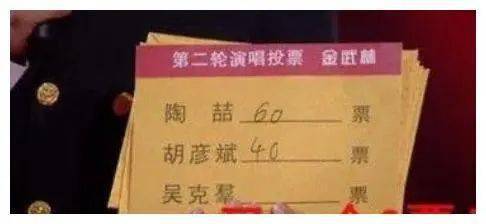 第二轮演唱投票 金武林
陶喆 60 票
胡彦斌 40 票
吴克羣 票